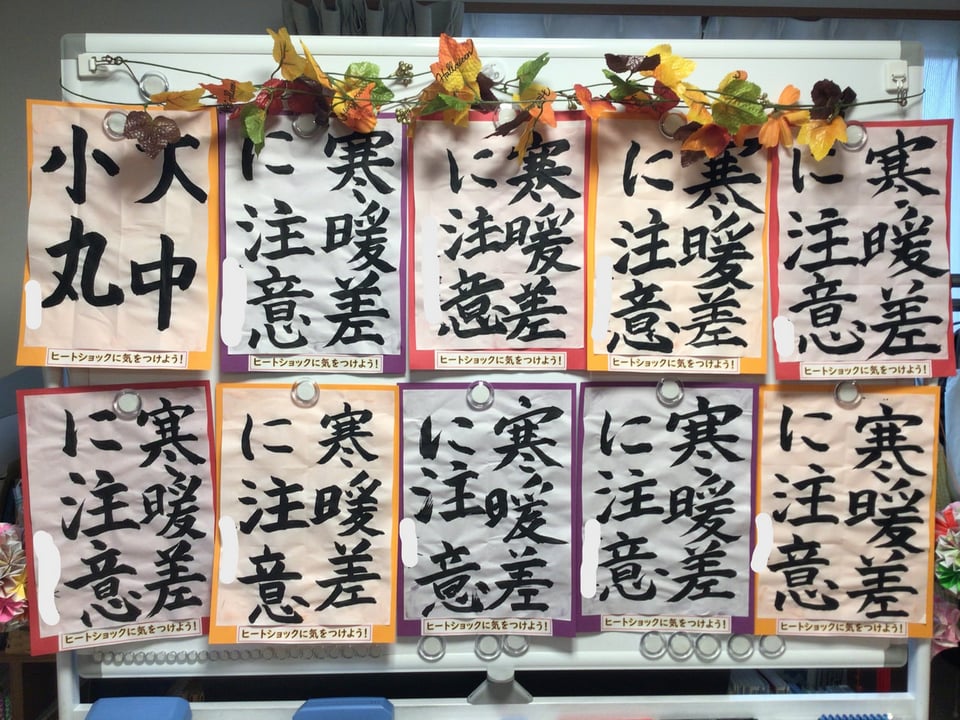 大中
小丸
ヒートショックに気をつけよう!
寒暖差
に注意
ヒートショックに気をつけよう!
寒暖差
に注意
ヒートショックに気をつけよう!
寒暖差
に注意
ヒートショックに気をつけよう!
寒暖差
に注意
ヒートショックに気をつけよう!
寒暖差
に注意
ヒートショックに気をつけよう!
寒暖差
に注意
ヒートショックに気をつけよう!
寒暖差
に注意
ヒートショックに気をつけよう!
寒暖差
に注意
ヒートショックに気をつけよう!
寒暖差
に注意
ヒートショックに気をつけよう!